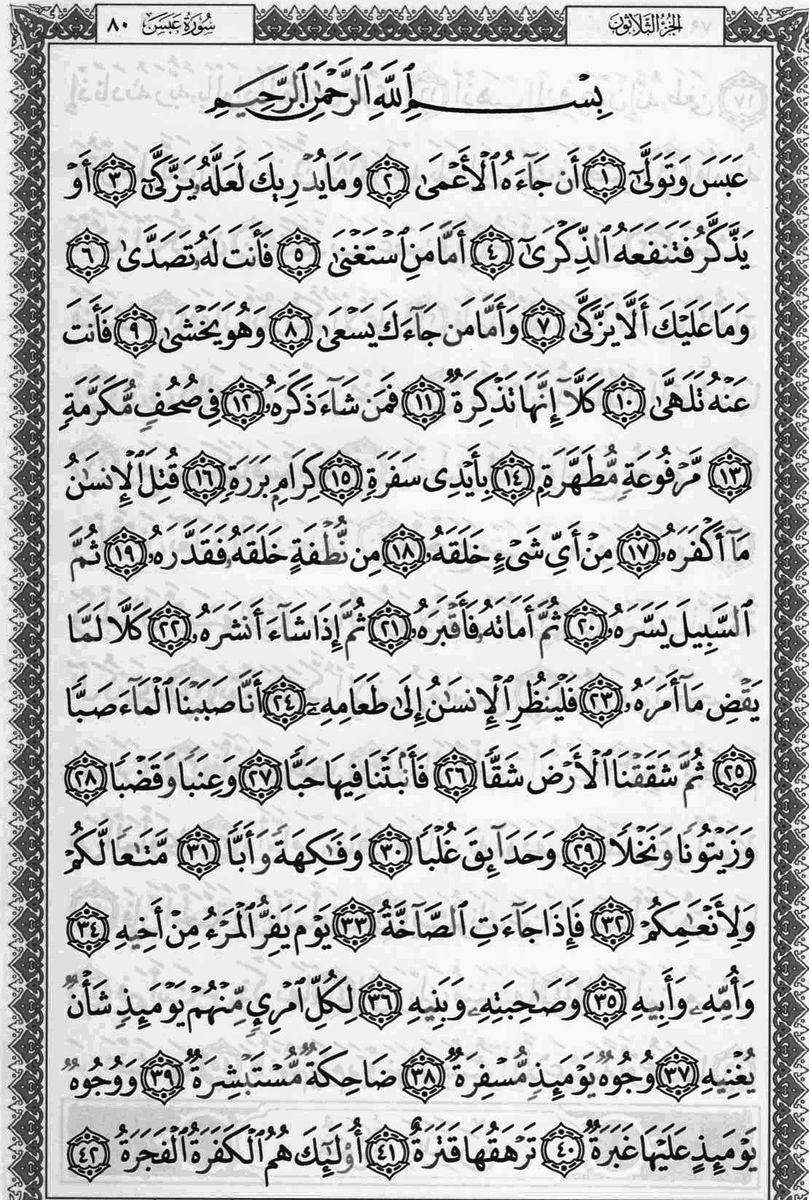 الجزء الثلاثون سورة عبس ٨٠
بِسْمِ ٱللَّهِ ٱلرَّحْمَٰنِ ٱلرَّحِيمِ
عَبَسَ وَتَوَلَّىٰٓ ١ أَن جَآءَهُ ٱلْأَعْمَىٰ ٢ وَمَا يُدْرِيكَ لَعَلَّهُۥ يَزَّكَّىٰٓ ٣ أَوْ
يَذَّكَّرُ فَتَنفَعَهُ ٱلذِّكْرَىٰٓ ٤ أَمَّا مَنِ ٱسْتَغْنَىٰ ٥ فَأَنتَ لَهُۥ تَصَدَّىٰ ٦
وَمَا عَلَيْكَ أَلَّا يَزَّكَّىٰ ٧ وَأَمَّا مَن جَآءَكَ يَسْعَىٰ ٨ وَهُوَ يَخْشَىٰ ٩ فَأَنتَ
عَنْهُ تَلَهَّىٰ ١٠ كَلَّآ إِنَّهَا تَذْكِرَةٌ ١١ فَمَن شَآءَ ذَكَرَهُۥ ١٢ فِى صُحُفٍ مُّكَرَّمَةٍ
١٣ مَّرْفُوعَةٍ مُّطَهَّرَةٍۭ ١٤ بِأَيْدِى سَفَرَةٍ ١٥ كِرَامٍۭ بَرَرَةٍ ١٦ قُتِلَ ٱلْإِنسَٰنُ
مَآ أَكْفَرَهُۥ ١٧ مِنْ أَىِّ شَىْءٍ خَلَقَهُۥ ١٨ مِن نُّطْفَةٍ خَلَقَهُۥ فَقَدَّرَهُۥ ١٩ ثُمَّ
ٱلسَّبِيلَ يَسَّرَهُۥ ٢٠ ثُمَّ أَمَاتَهُۥ فَأَقْبَرَهُۥ ٢١ ثُمَّ إِذَا شَآءَ أَنشَرَهُۥ ٢٢ كَلَّا لَمَّا
يَقْضِ مَآ أَمَرَهُۥ ٢٣ فَلْيَنظُرِ ٱلْإِنسَٰنُ إِلَىٰ طَعَامِهِۦٓ ٢٤ أَنَّا صَبَبْنَا ٱلْمَآءَ صَبًّا
٢٥ ثُمَّ شَقَقْنَا ٱلْأَرْضَ شَقًّا ٢٦ فَأَنۢبَتْنَا فِيهَا حَبًّا ٢٧ وَعِنَبًا وَقَضْبًا ٢٨
وَزَيْتُونًا وَنَخْلًا ٢٩ وَحَدَآئِقَ غُلْبًا ٣٠ وَفَٰكِهَةً وَأَبًّا ٣١ مَّتَٰعًا لَّكُمْ
وَلِأَنْعَٰمِكُمْ ٣٢ فَإِذَا جَآءَتِ ٱلصَّآخَّةُ ٣٣ يَوْمَ يَفِرُّ ٱلْمَرْءُ مِنْ أَخِيهِ ٣٤
وَأُمِّهِۦ وَأَبِيهِ ٣٥ وَصَٰحِبَتِهِۦ وَبَنِيهِ ٣٦ لِكُلِّ ٱمْرِئٍ مِّنْهُمْ يَوْمَئِذٍ شَأْنٌ
يُغْنِيهِ ٣٧ وُجُوهٌ يَوْمَئِذٍ مُّسْفِرَةٌ ٣٨ ضَاحِكَةٌ مُّسْتَبْشِرَةٌ ٣٩ وَوُجُوهٌ
يَوْمَئِذٍ عَلَيْهَا غَبَرَةٌ ٤٠ تَرْهَقُهَا قَتَرَةٌ ٤١ أُو۟لَٰٓئِكَ هُمُ ٱلْكَفَرَةُ ٱلْفَجَرَةُ ٤٢